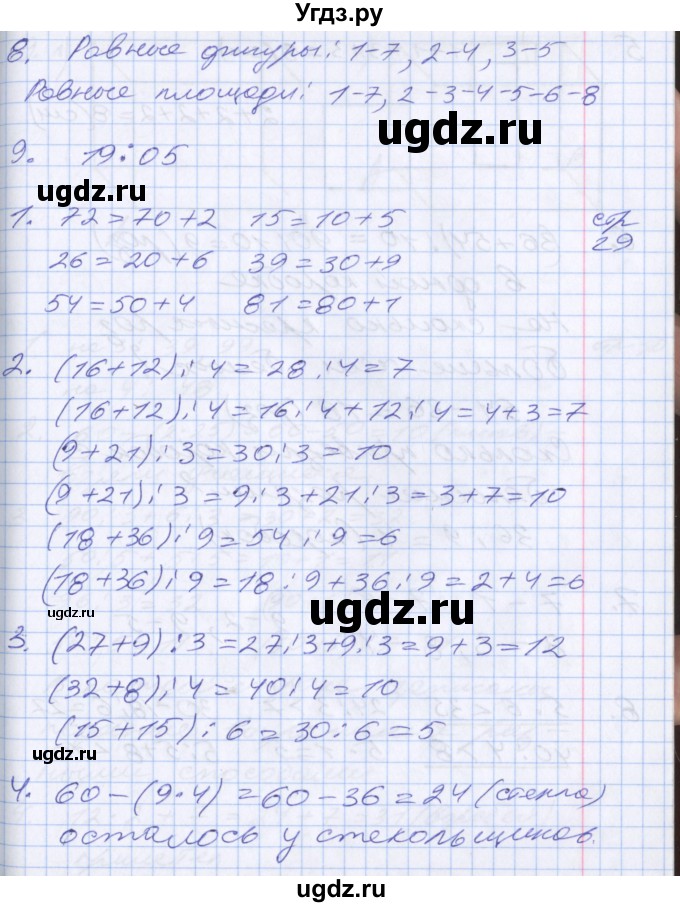 Угдз.ру
8. Равные фигуры: 1-7, 2-4, 3-5
Равные площади: 1-7, 2-3-4-5-6-8
ugdz.ru
9. 19:05
ugdz.ru
1. 72=70+2 15=10+5 стр 29
26=20+6 39=30+9
54=50+4 81=80+1
2. (16+12):4=28:4=7
(16+12):4=16:4+12:4=4+3=7
(9+21):3=30:3=10
(9+21):3=9:3+21:3=3+7=10
(18+36):9=54:9=6
(18+36):9=18:9+36:9=2+4=6
ugdz.ru
ugdz.ru
3. (27+9):3=27:3+9:3=9+3=12
(32+8):4=40:4=10
(15+15):6=30:6=5
ugdz.ru
ugdz.ru
4. 60-(9·4)=60-36=24 (стекла)
осталось у стекольщиков.
ugdz.ru